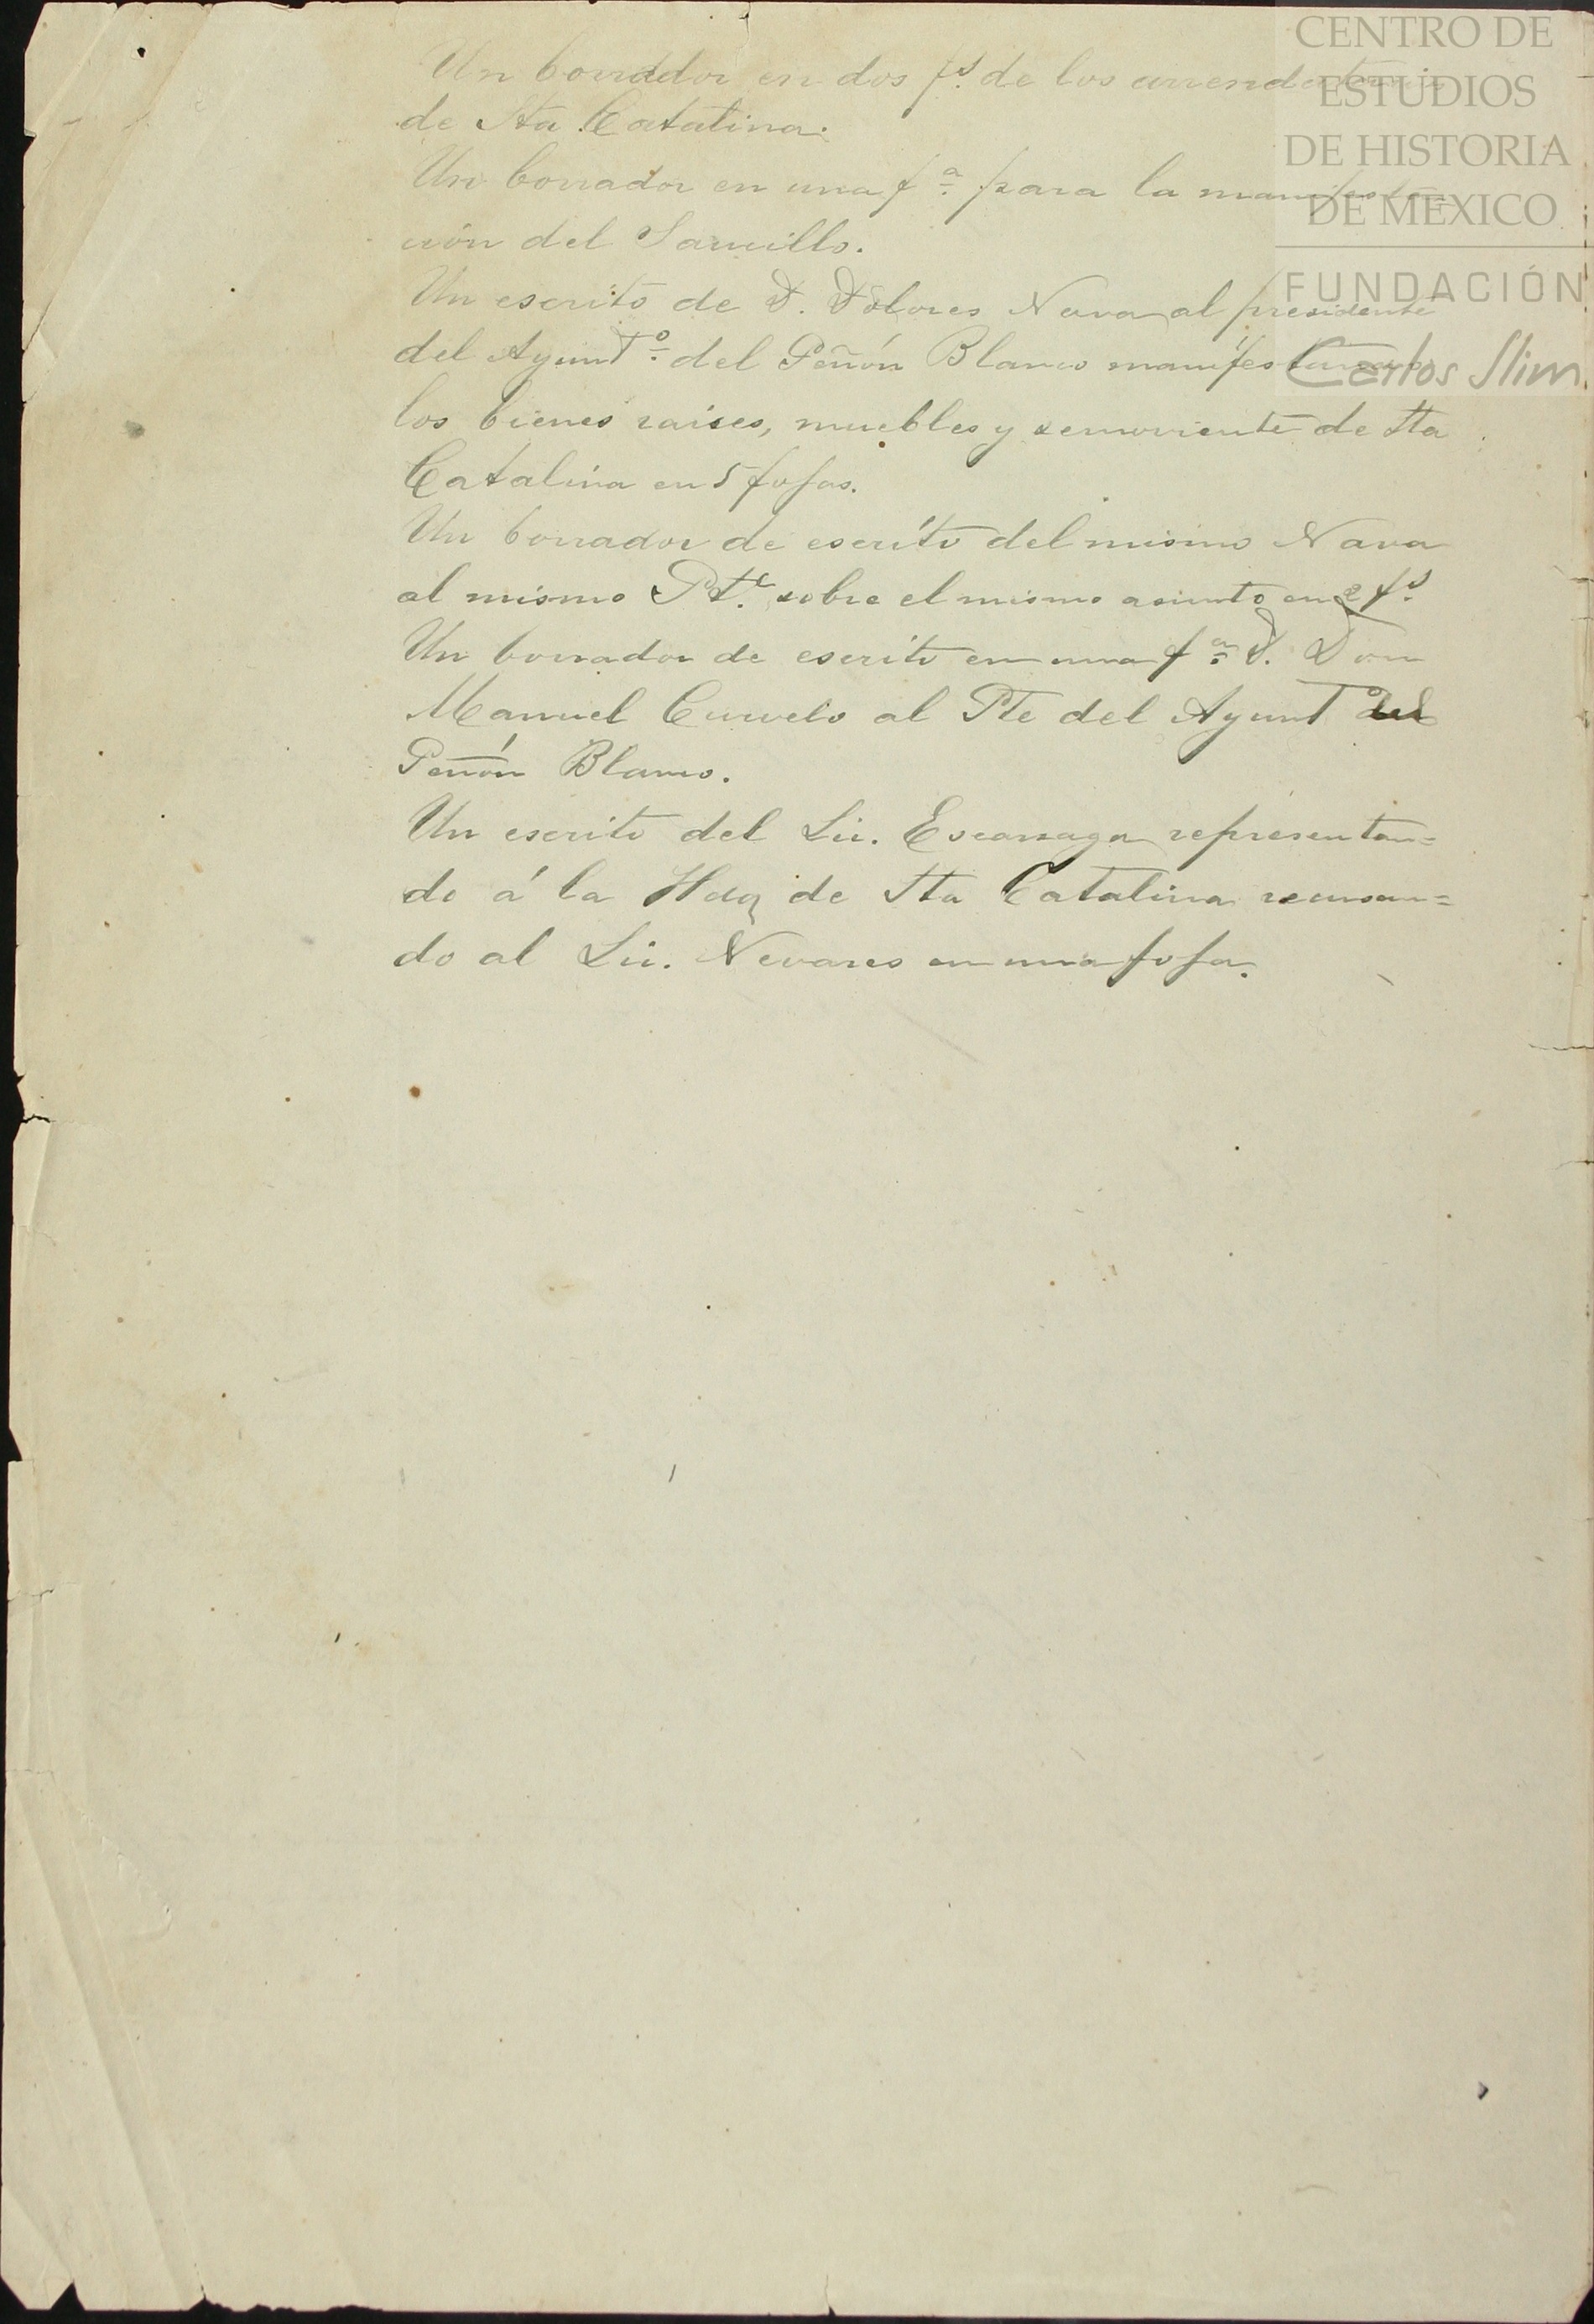 Un borrador en dos fs. de los arrendatarios
de Sta Catalina.
Un borrador en una fa. para la manifesta=
ción del Saucillo.
Un escrito de D. Dolores Nava al presidente
del Ayuntº. del Peñón Blanco manifestando
los bienes raises, muebles y semoviente de Sta
Catalina en 5 fojas.
Un borrador de escrito del mismo Nava
al mismo Pte. sobre el mismo asunto en 2 fs.
Un borrador de escrito en una fa. D. Don
Manuel Curvelo al Pte del Ayuntº del
Peñón Blanco.
Un escrito del Lic. Escarzaga representan=
do á la Hda de Sta Catalina recusan=
do al Lic. Nevares en una foja.
CENTRO DE
ESTUDIOS
DE HISTORIA
DE MEXICO
FUNDACIÓN
Carlos Slim